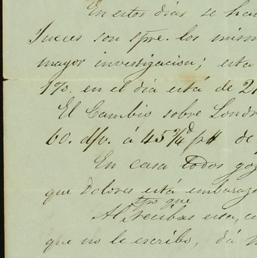 En estos días se ha
Jueces son spre. los mism
mayor investigacion; esta
173. en el día está de 2
El Cambio sobre Londr
60. d/v. á 45¾ p% de
En casa todos goz
que Dolores está embaraz
Al recibas esta, c
que no le escribo, dá